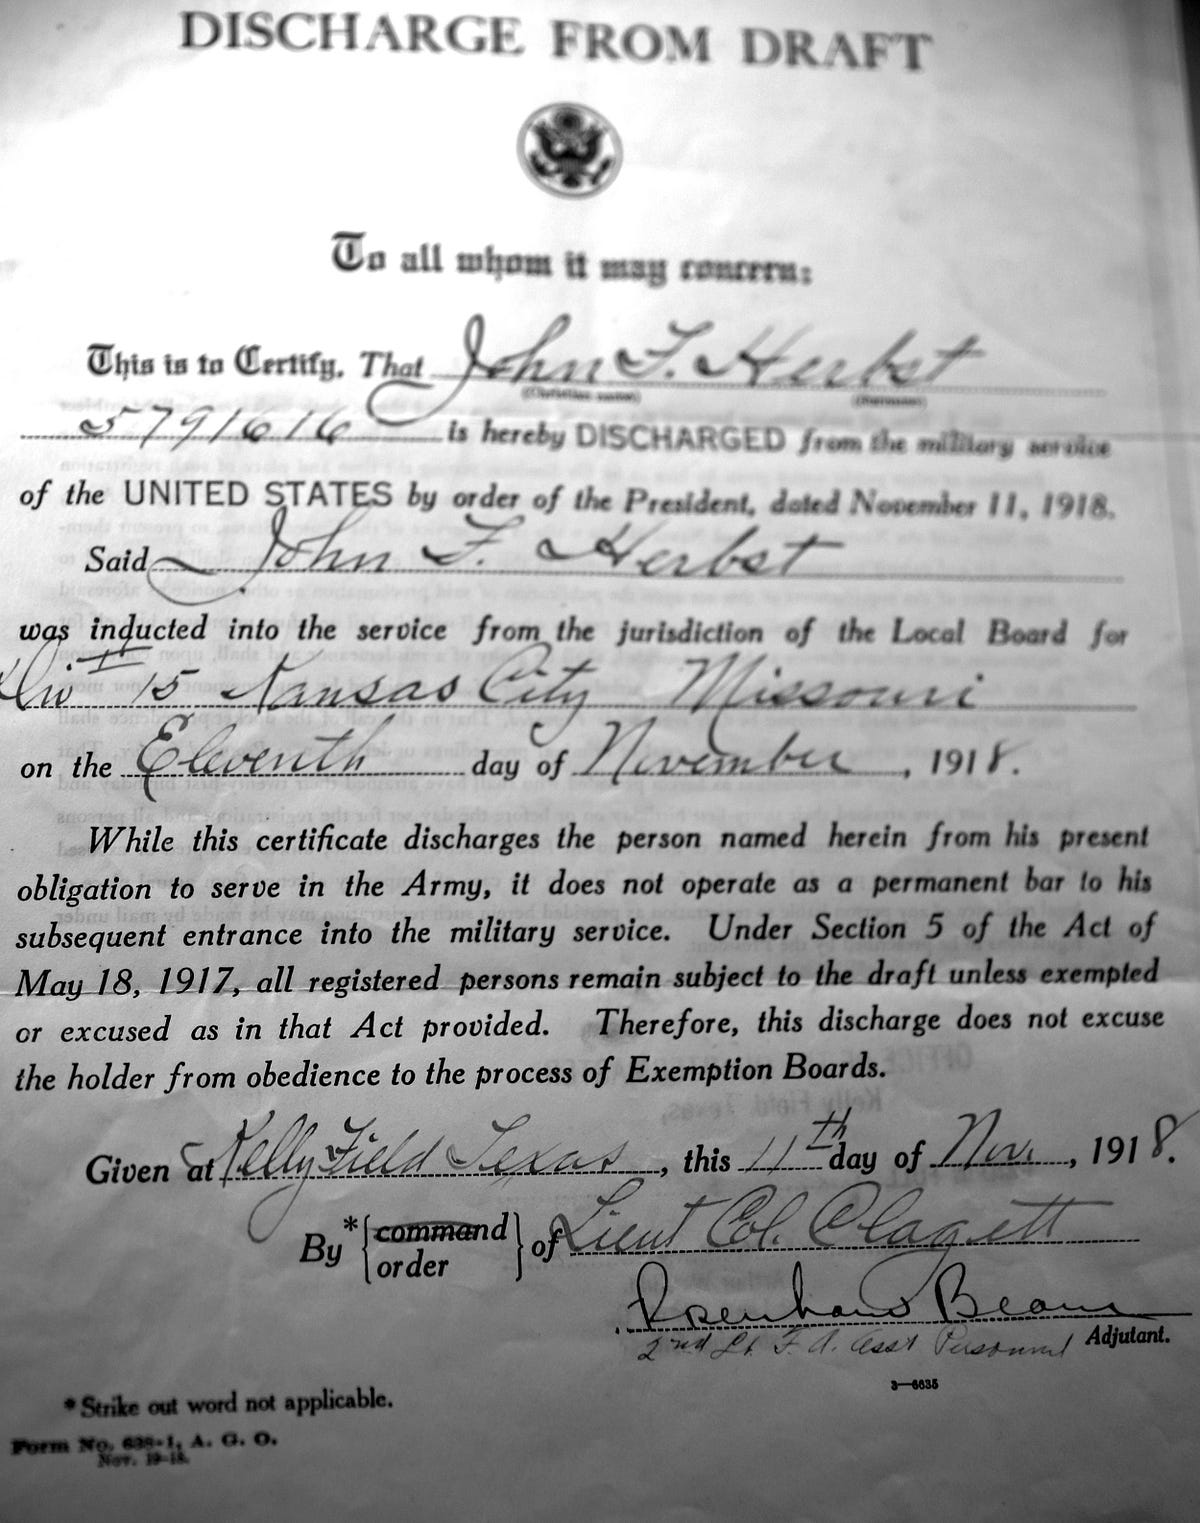 DISCHARGE FROM DRAFT
To all whom it may concern:
This is to Certify, That John F. Herbst
(Christian name) (Surname)
5791616 is hereby DISCHARGED from the military service
of the UNITED STATES by order of the President, dated November 11, 1918.
Said John F. Herbst
was inducted into the service from the jurisdiction of the Local Board for
Div. #15 Kansas City Missouri
on the Eleventh day of November, 1918.
While this certificate discharges the person named herein from his present
obligation to serve in the Army, it does not operate as a permanent bar to his
subsequent entrance into the military service. Under Section 5 of the Act of
May 18, 1917, all registered persons remain subject to the draft unless exempted
or excused as in that Act provided. Therefore, this discharge does not excuse
the holder from obedience to the process of Exemption Boards.
Given at Kelly Field Texas, this 11th day of Nov., 1918.
By *{command order} of Lieut Col. Clagett
Beam
2nd Lt. F. A. Asst Personnel Adjutant.
3—6635
*Strike out word not applicable.
Form No. 638-1, A. G. O.
Nov. 19-18.